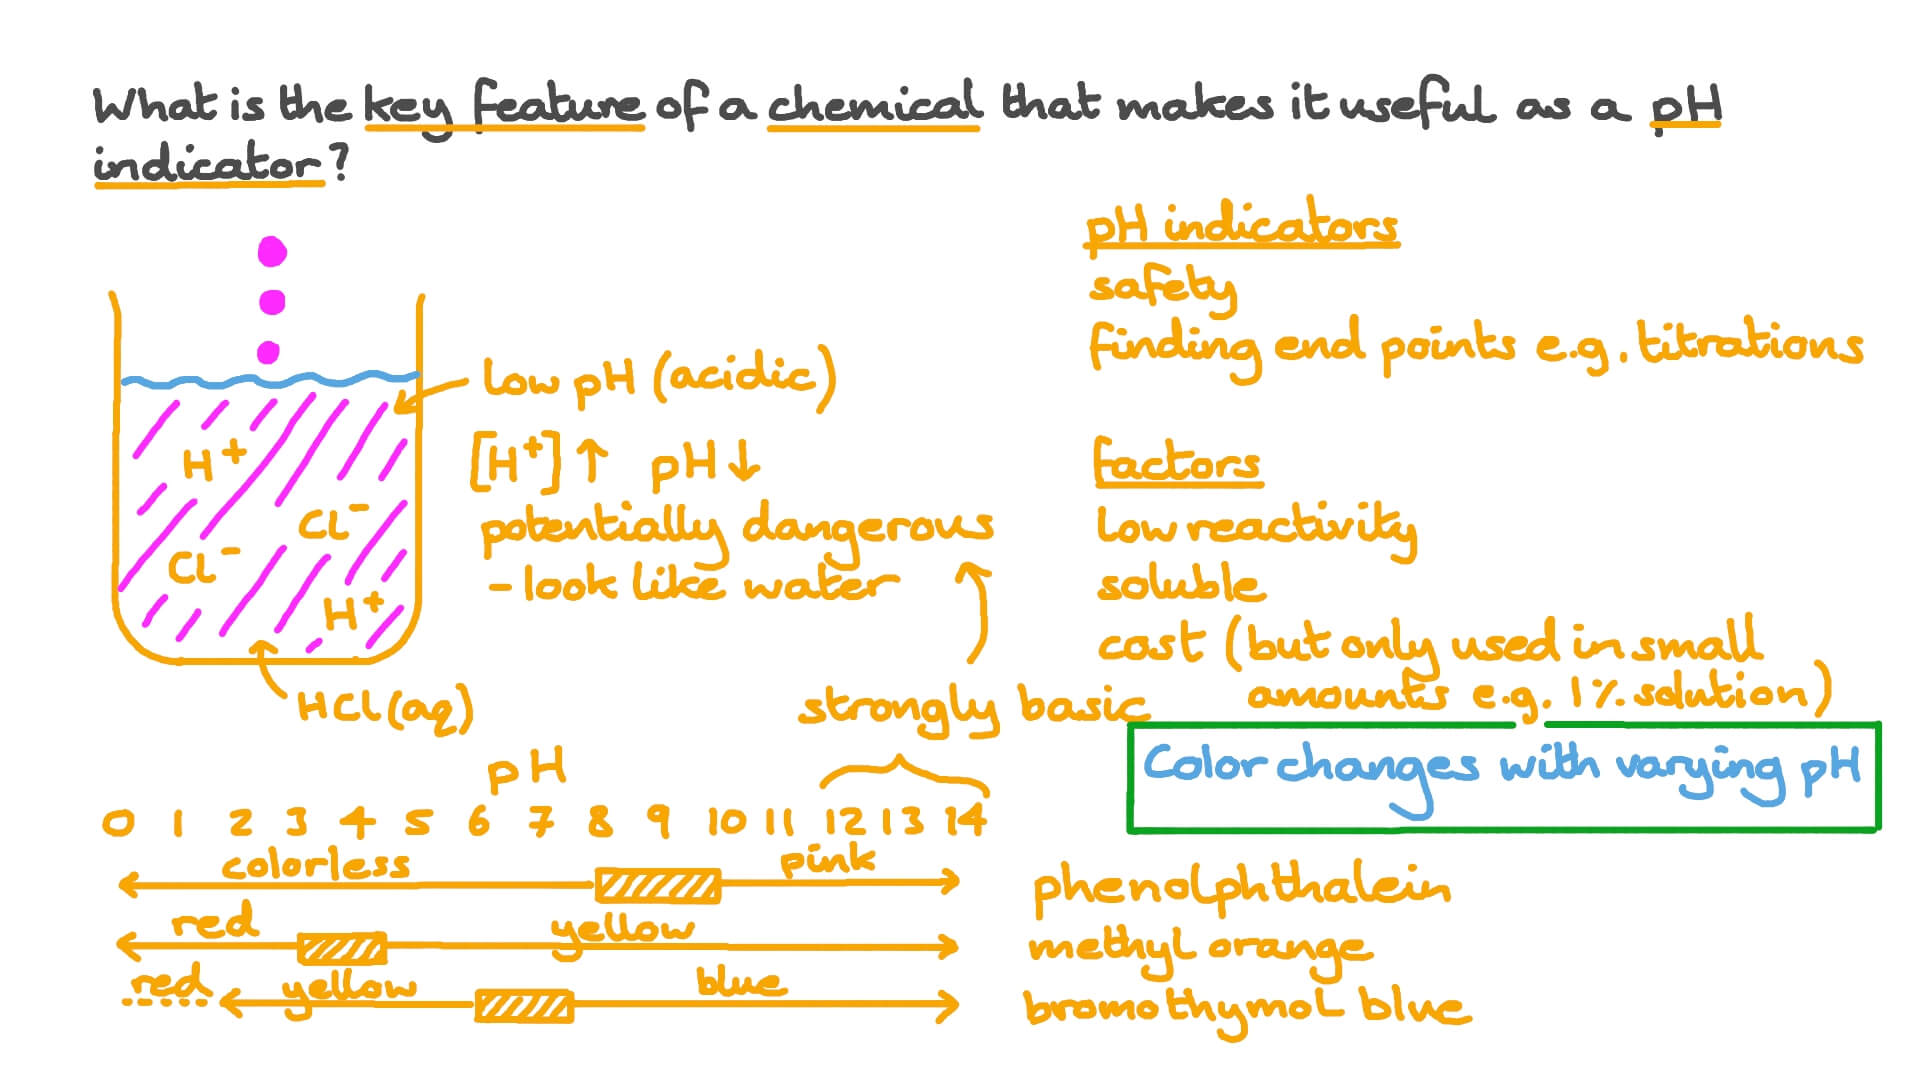 What is the key feature of a chemical that makes it useful as a pH
indicator?
pH indicators
safety
finding end points e.g. titrations
low pH (acidic)
[H⁺] ↑ pH ↓
potentially dangerous
- look like water
H⁺
Cl⁻
Cl⁻
H⁺
HCl(aq)
factors
low reactivity
soluble
cost (but only used in small
amounts e.g. 1% solution)
Color changes with varying pH
strongly basic
pH
0 1 2 3 4 5 6 7 8 9 10 11 12 13 14
colorless pink phenolphthalein
red yellow methyl orange
red yellow blue bromothymol blue